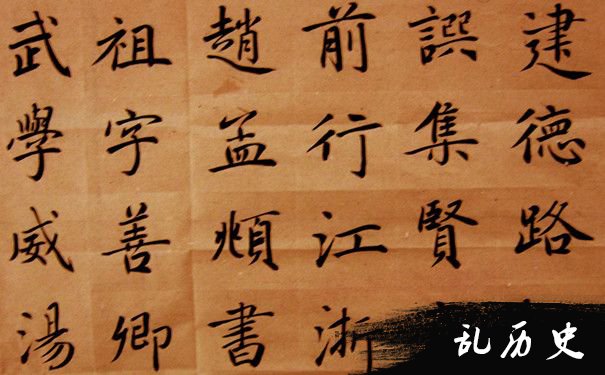 建德路
譔集賢
前行江浙
趙孟頫書
祖字善卿
武學威湯
乱历史